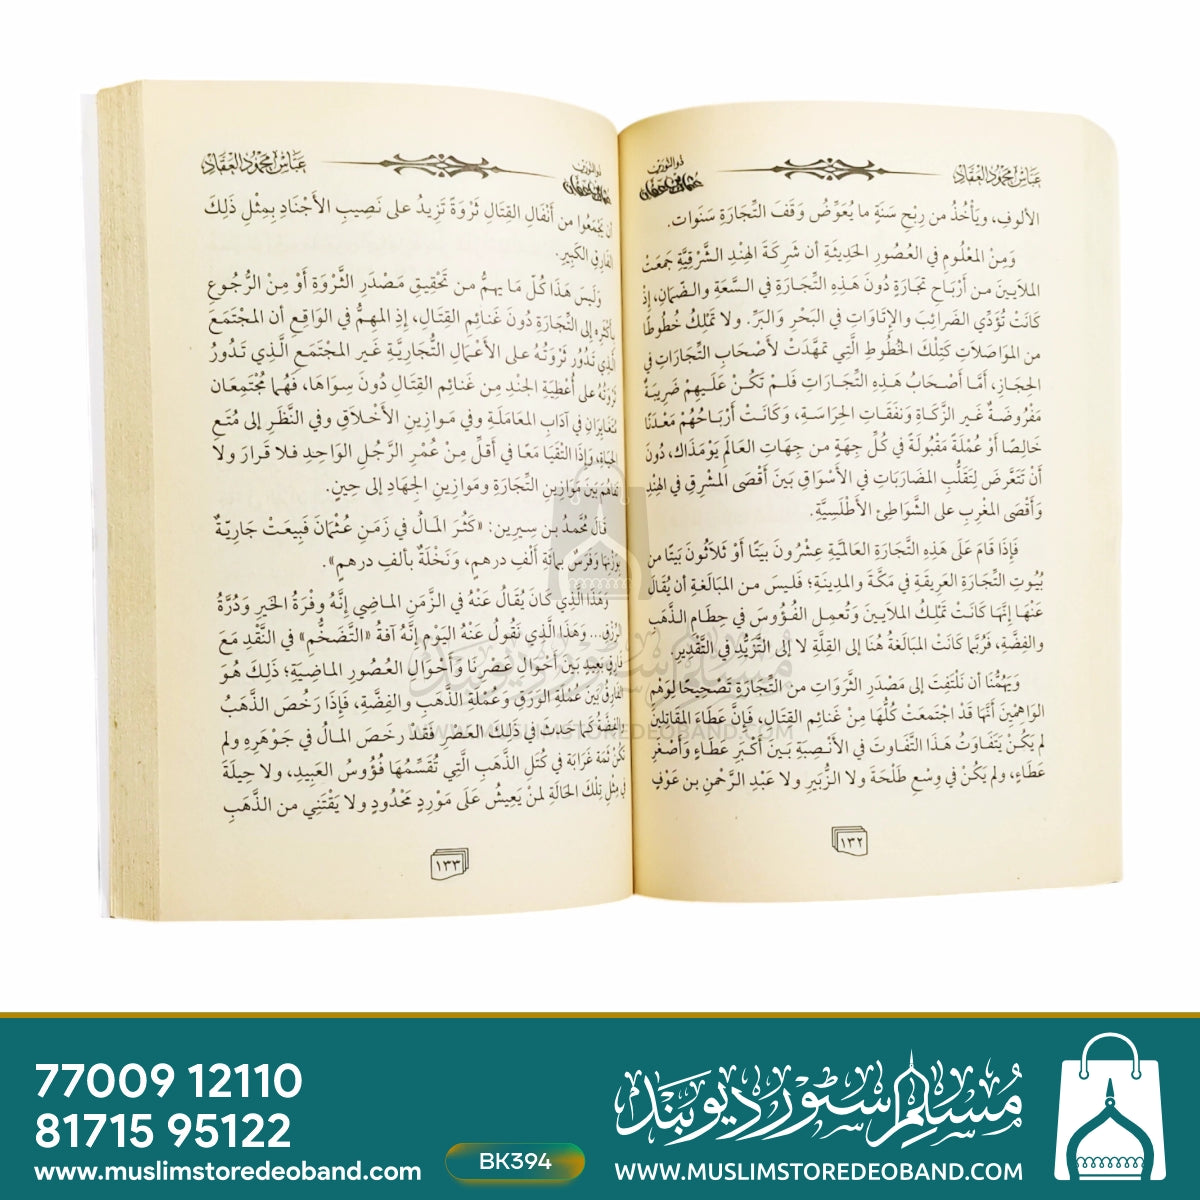 عباس محمود العقاد
ذو النورين
عثمان بن عفان
الألوفِ، ويَأخُذُ من رِبْحِ سَنَةٍ ما يُعَوِّضُ وَقَفَ التِّجَارَةِ سَنَوات.
وَمِنْ المَعْلُومِ في العُصُورِ الحَدِيثَةِ أن شَرِكَةَ الهِنْدِ الشَّرْقِيَّةِ جَمَعَتْ
الملايينَ من أرْبَاحِ تِجَارَةٍ دُونَ هَـذِهِ التِّجَارَةِ في السَّعَةِ والـضَّمَانِ، إذْ
كَانَتْ تُؤَدِّي الضَرائِبَ والإتَاوَاتِ في البَحْرِ والبَرِّ. ولا تَمْلِكُ خُطُوطًا
من المَواصَلاتِ كَتِلْكَ الخُطُوطِ الَّتِي تَمَهَّدَتْ لأَصْحَابِ التِّجَارَاتِ في
الحِجَازِ، أمَّا أَصْحَابُ هَـذِهِ التِّجَارَاتِ فَلمْ تَكُـنْ عَلَـيهِمْ ضَرِيبَةٌ
مَفْرُوضَةٌ غَـيرِ الزَّكَاةِ وَنَفَقَاتِ الحِرَاسَةِ، وَكَانَـتْ أَرْبَـاحُهُمْ مَعْدَنًا
خَالِصًا أَوْ عُمْلَةً مَقْبُولَةً في كُلِّ جِهَةٍ مـن جِهَاتِ العَالَمِ يَوْمَذَاك، دُونَ
أَنْ تَتَعَرَّضَ لِتَقَلُّبِ المضَارَبَاتِ في الأَسْوَاقِ بَيْنَ أَقْصَى المشْرِقِ في الهِنْدِ
وَأَقْصَى المَغْرِبِ على الشَّوَاطِئِ الأَطْلَسِيَّةِ.
فَإِذَا قَامَ عَلَى هَذِهِ التِّجَارَةِ العَالمِيَّةِ عِشْرُونَ بَيْتًا أَوْ ثَلاَثُونَ بَيْتًا من
بُيُوتِ التِّجَارَةِ العَرِيقَةِ في مَكَّةَ والمدِينَةِ؛ فَليسَ مـن المبَالَغَةِ أن يُقَالَ
عَنْهَا إِنَّهَا كَانَتْ تَمْلِكُ الملايينَ وَتُعْمِـلِ الفُؤُوسَ في حِطَامِ الـذَّهَبِ
والفِضَّةِ، فَرُبَّمَا كَانَتْ المبَالَغَةُ هُنَا إلى القِلَّةِ لا إلى التَّزَيُّدِ في التَّقْدِيرِ.
وَيَهُمُّنَا أن نَلْتَفِتَ إلى مَصْدَرِ الثَّرَوَاتِ من التِّجَارَةِ تَصْحِيحًا لِوَهْمِ
الوَاهِمِينَ أَنَّهَا قَدْ اجْتَمَعَتْ كُلُّهَا مِنْ غَنَائِمِ القِتَالِ، فَإِنَّ عَطَاءَ المقَاتِلِينَ
لم يَكُـنْ يَتَفَاوَتُ هَـذَا التَّفَاوتَ في الأَنْـصِبَةِ بَـيْنَ أَكْبَرِ عَطَاءٍ وَأَصْغَرِ
عَطَاءٍ، ولم يَكُنْ في وِسْعِ طَلْحَةَ ولا الزُّبَيرِ ولا عَبْدِ الرَّحْمنِ بن عَوْفٍ
١٣٢
ذو النورين
عثمان بن عفان
عباس محمود العقاد
أن يَجْمَعُوا من أَنْفَالِ القِتَالِ ثَرْوَةً تَزِيدُ على نَصِيبِ الأَجْنَادِ بِمِثْلِ ذَلِكَ
الفَارِقِ الكَبِيرِ.
وَلَيسَ هَـذَا كُلّ مَا يهمُّ مـن تَحْقِيقِ مَصْدَرِ الثَّرْوَةِ أَوْ مِنْ الرُّجُوعِ
بأكْثَرِهِ إلى التِّجَارَةِ دُونَ غَنَائِمِ القِتَالِ، إذِ المهِمُّ في الوَاقِعِ أن المجْتَمَعَ
الَّذِي تَدُورُ ثَرْوَتُهُ على الأَعْمَالِ التُّجَارِيَّةِ غَيرِ المجْتَمَعِ الَّذِي تَدُورُ
ثَرْوَتُهُ على أَعْطِيَةِ الجُنْدِ مِن غَنَائِمِ القِتَالِ دُونَ سِوَاهَا، فَهُمَا مُجْتَمِعَان
مُتَغَايِرَانِ في آدَابِ المعَامَلَةِ وفي مَوازِينِ الأَخْلاَقِ وفي النَّظَرِ إلى مُتَعِ
الحيَاةِ، وَإِذَا التْقَيَا مَعًا في أَقَلِّ مِـنْ عُمْرِ الرَّجُلِ الوَاحِـدِ فـلا قَرارَ ولا
تَفَاهُمَ بَينَ مَوَازِينِ التِّجَارَةِ ومَوازِينِ الجِهَادِ إلى حِينٍ.
قَالَ مُحَمدُ بن سِيرِين: «كَثُرَ المَالُ في زَمَنِ عُثْمَانَ فَبِيعَتْ جَارِيّةٌ
بِوَزْنِهَا وَفَرَسٌ بِمائَةِ أَلْفِ درهمٍ، وَنَخْلَةٌ بألفِ درهمٍ».
وَهَذَا الَّذِي كَانَ يُقَالُ عَنْهُ في الزَّمَنِ المـاضِي إِنَّهُ وفْرَةُ الخَيرِ وَدُرَّةُ
الرِّزْقِ... وَهَذَا الَّذِي نَقُولُ عَنْهُ اليَوْمَ إِنَّهُ آفَةُ «التَّضَخُّمِ» في النَّقْدِ مَعَ
فَارِقٍ بَعِيدٍ بَينَ أَحْوَالِ عَصْرِنَا وَأَحْوَالِ العُصُورِ الماضِيَةِ؛ ذَلِكَ هُـوَ
الفَارِقُ بَينَ عُمْلَةِ الوَرَقِ وَعُمْلَةِ الذَّهَبِ والفِضَّةِ، فَإِذَا رَخُصَ الذَّهَبُ
والفِضَّةُ كَمَا حَدَثَ في ذَلِكَ العَصْرِ فَقَدْ رَخَصَ المـال في جَوْهَرِهِ ولم
تَكُنْ ثمّةَ غَرَابَة في كُتَلِ الذَّهَبِ الَّتِي تُقَسِّمُهَا فُؤُوسُ العَبِيدِ، ولا حِيلَةَ
في مِثْلِ تِلْكَ الحَالَةِ لمنْ يَعِيشُ عَلَى مَوْرِدٍ مَحْدُودٍ ولا يَقْتَنِي من الذَّهَبِ
١٣٣
مسلم سٹور ديوبند
WWW.MUSLIMSTOREDEOBAND.COM
77009 12110
81715 95122
www.muslimstoredeoband.com
BK394
مسلم سٹور ديوبند
WWW.MUSLIMSTOREDEOBAND.COM